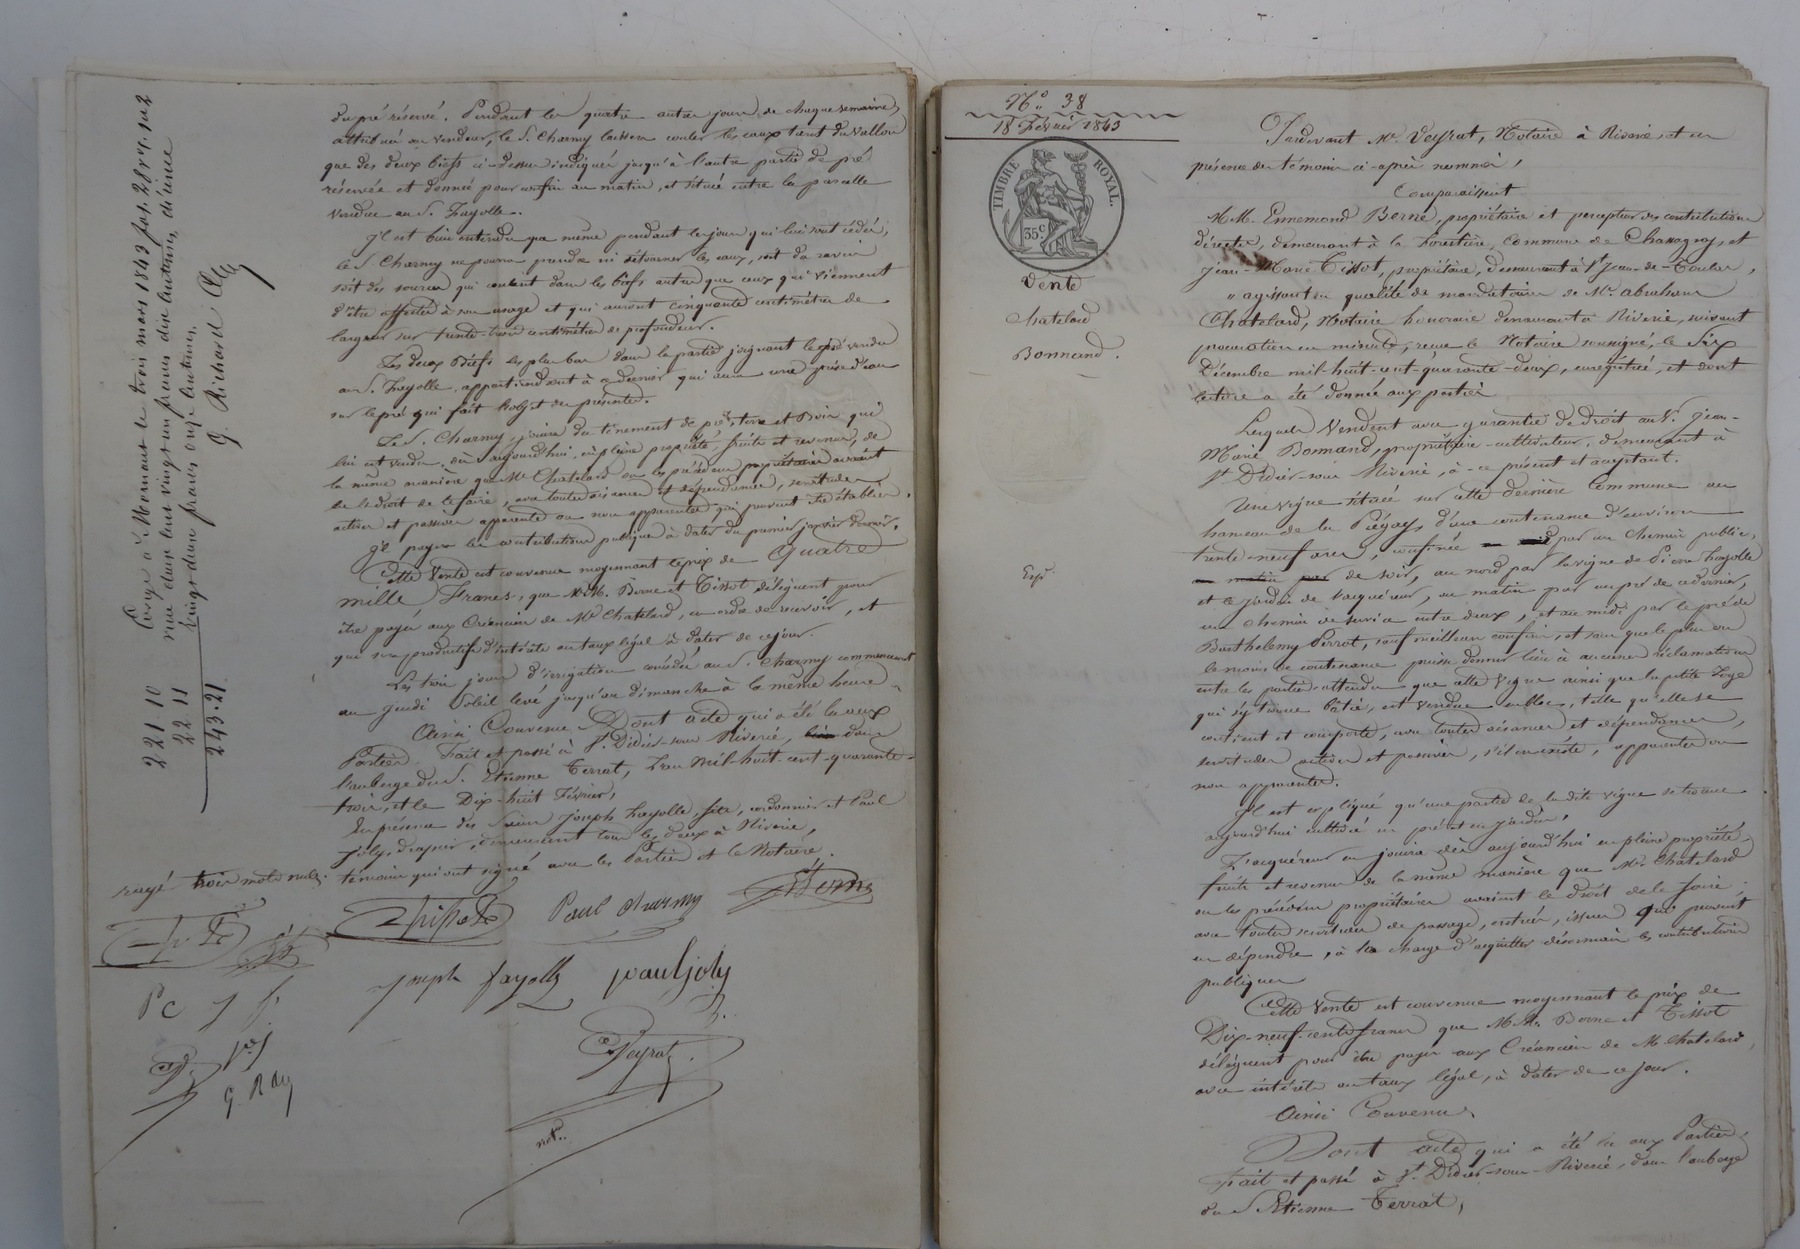 du pré réservé. Pendant les quatre autres jours de chaque semaine,
attribués au vendeur, le S. Charmy laissera couler les eaux tant du vallon
que des deux biefs ci-dessus indiqués jusqu'à l'autre partie de pré
réservée et donnée pour confin au matin, et située entre la parcelle
vendue au S. Fayolle.
Il est bien entendu que même pendant les jours qui lui sont cédés,
le S. Charmy ne pourra prendre ni détourner les eaux, soit du ravin
soit des sources qui coulent dans les biefs autres que ceux qui viennent
d'être affectés à son usage et qui auront cinquante centimètres de
largeur sur trente-trois centimètres de profondeur.
Les deux Biefs les plus bas dans la partie joignant le pré vendu
au S. Fayolle, appartiendront à ce dernier qui aura une prise d'eau
sur le pré qui fait l'objet des présentes.
Le S. Charmy, jouira du tènement de pré, terre et Bois qui
lui est vendu, dès aujourd'hui, en pleine propriété fruits et revenus, de
la même manière que Me Chatelard ou les précédens propriétaires avaient
le droit de le faire, avec toutes aisances et dépendances, servitudes
actives et passives apparentes ou non apparentes qui peuvent être établies.
Il payera les contributions publiques à dater du premier janvier dernier.
Cette Vente est convenue moyennant le prix de Quatre
mille Francs, que MM. Berne et Tissot délèguent pour
être payés aux Créanciers de Me Chatelard, en ordre de recevoir, et
qui sera productif d'intérêts au taux légal à dater de ce jour.
Les trois jours d'irrigation concédés au S. Charmy commencent
au jeudi Soleil levé jusqu'au dimanche à la même heure
Ainsi Convenu. Dont acte qui a été lu aux
Parties. Fait et passé à St. Didier-sous-Riverie, dans
l'auberge du S. Etienne Terrat, L'an Mil-huit-cent-quarante-
trois, et le Dix-huit Février,
En présence des Sieurs Joseph Fayolle, fils, cordonnier et Paul
Joly, drapier, demeurant tous les deux à Riverie,
témoins qui ont signé avec les Parties et le Notaire.
rayé trois mots nuls.
Tissot
Paul Charmy
Berne
Joseph fayolle
paul joly
P C
J f.
G. Ray
Veyrat
not.
Enrg. à Mornant le trois mars 1843 fol.
vingt un francs dix centimes, décime
vingt deux francs onze centimes.
G. Richard
221.10
22.11
243.21
No. 38
18 Février 1843
TIMBRE ROYAL.
35 c
Vente
Chatelard
Bonnand.
Exp.
Pardevant Me. Veyrat, Notaire à Riverie, et en
présence des témoins ci-après nommés,
Comparaissent
MM. Ennemond Berne, propriétaire et percepteur des contributions
directes, demeurant à la Forestière, Commune de Chassagny, et
Jean-Marie Tissot, propriétaire, demeurant à St Jean-de-Toulas,
agissant en qualité de mandataires de Me. Abraham
Chatelard, Notaire honoraire demeurant à Riverie, suivant
procuration en minute, reçue le Notaire soussigné, le Six
Décembre mil-huit-cent-quarante-deux, enregistrée, et dont
lecture a été donnée aux parties
Lesquels Vendent avec garantie de droit au S. Jean-
Marie Bonnand, propriétaire-cultivateur, demeurant à
St Didier-sous-Riverie, à ce présent et acceptant.
Une vigne située sur cette dernière Commune au
hameau de la Piégay, d'une contenance d'environ
trente-neuf ares, confinée par un chemin public,
de soir, au nord par la vigne de Pierre Fayolle
et le jardin de l'acquéreur, au matin par un pré de ce dernier,
un chemin de service entre deux, et au midi par le pré de
Barthelemy Perrot, sauf meilleurs confins, et sans que le plus ou
le moins de contenance puisse donner lieu à aucune réclamation
entre les parties attendu que cette vigne ainsi que la petite Loge
qui s'y trouve bâtie, est vendue en bloc, telle qu'elle se
contient et comporte, avec toutes aisances et dépendances,
servitudes actives et passives, s'il en existe, apparentes ou
non apparentes.
Il est expliqué qu'une partie de la dite vigne se trouve
aujourd'hui cultivée en pré et en jardin.
L'acquéreur en jouira dès aujourd'hui en pleine propriété,
fruits et revenus de la même manière que Me Chatelard
ou les précédens propriétaires avaient le droit de le faire,
avec toutes servitudes de passage, entrées, issues qui peuvent
en dépendre, à la charge d'acquitter désormais les contributions
publiques
Cette Vente est convenue moyennant le prix de
Dix-neuf-cents francs que MM. Berne et Tissot
délèguent pour être payés aux Créanciers de Me Chatelard,
avec intérêts au taux légal, à dater de ce jour.
Ainsi Convenu.
Dont acte qui a été lu aux Parties,
Fait et passé à St. Didier-sous-Riverie, dans l'auberge
du S Etienne Terrat,